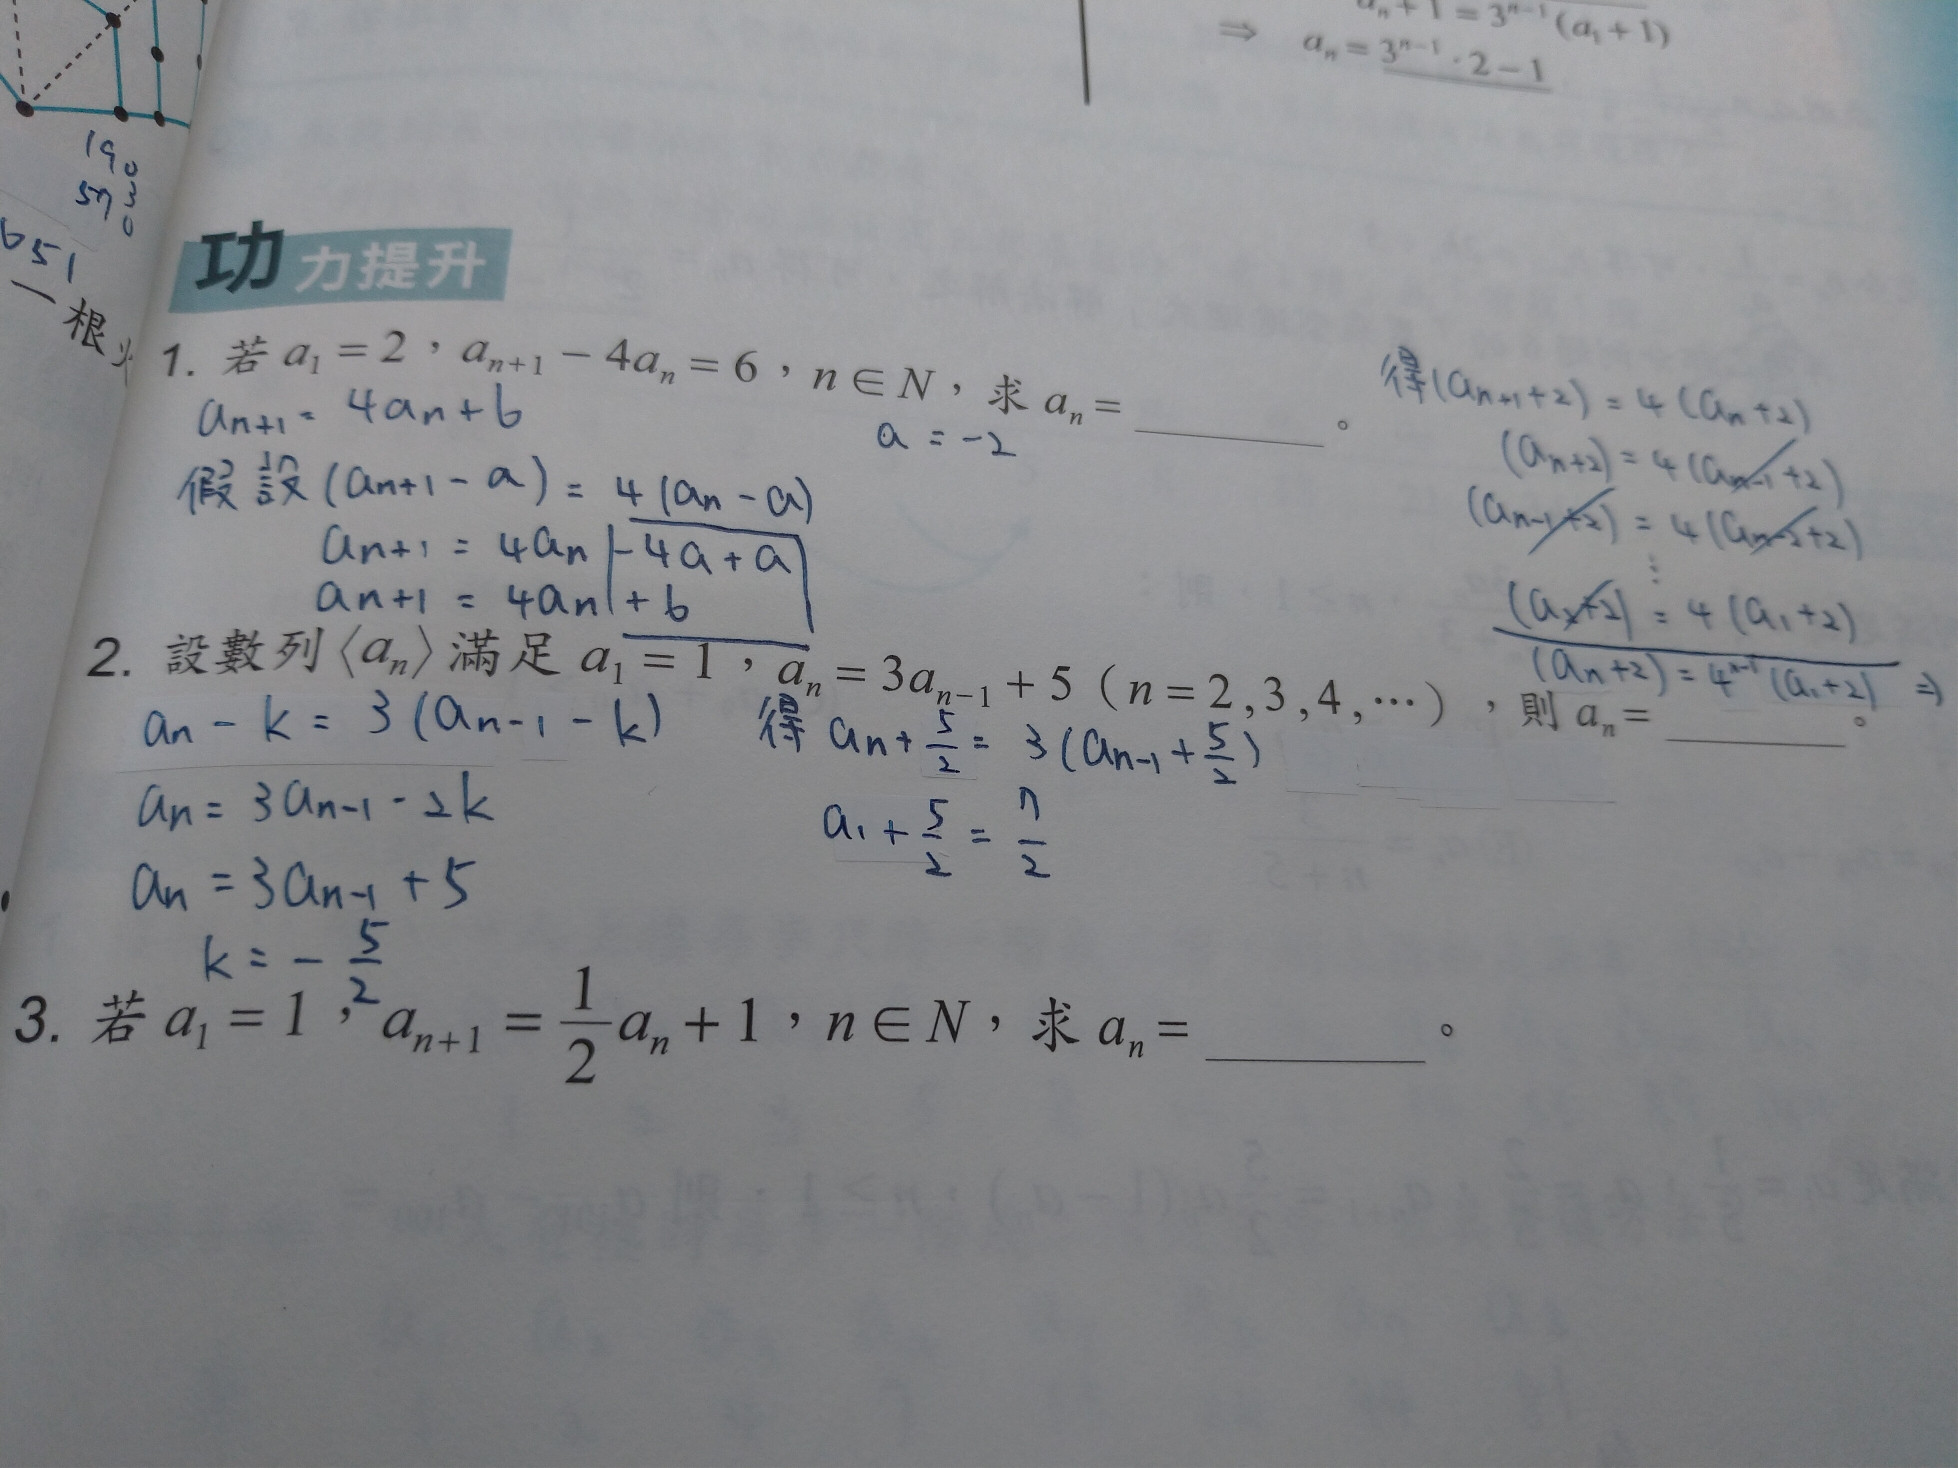 aₙ + 1 = 3ⁿ⁻¹(a₁ + 1)
⇒ aₙ = 3ⁿ⁻¹ · 2 − 1
190
573
0
651
一根
功力提升
1. 若 a₁ = 2,aₙ₊₁ − 4aₙ = 6,n ∈ N,求 aₙ = ________。
aₙ₊₁ = 4aₙ + 6
a = −2
假設 (aₙ₊₁ − a) = 4(aₙ − a)
aₙ₊₁ = 4aₙ − 4a + a
aₙ₊₁ = 4aₙ + 6
得 (aₙ₊₁ + 2) = 4(aₙ + 2)
(aₙ + 2) = 4(aₙ₋₁ + 2)
(aₙ₋₁ + 2) = 4(aₙ₋₂ + 2)
⋮
(a₂ + 2) = 4(a₁ + 2)
(aₙ + 2) = 4ⁿ⁻¹(a₁ + 2) ⇒
2. 設數列〈aₙ〉滿足 a₁ = 1,aₙ = 3aₙ₋₁ + 5(n = 2, 3, 4, ⋯),則 aₙ = ________。
aₙ − k = 3(aₙ₋₁ − k)
aₙ = 3aₙ₋₁ − 2k
aₙ = 3aₙ₋₁ + 5
k = − 5/2
得 aₙ + 5/2 = 3(aₙ₋₁ + 5/2)
a₁ + 5/2 = 7/2
3. 若 a₁ = 1,aₙ₊₁ = 1/2 aₙ + 1,n ∈ N,求 aₙ = ________。